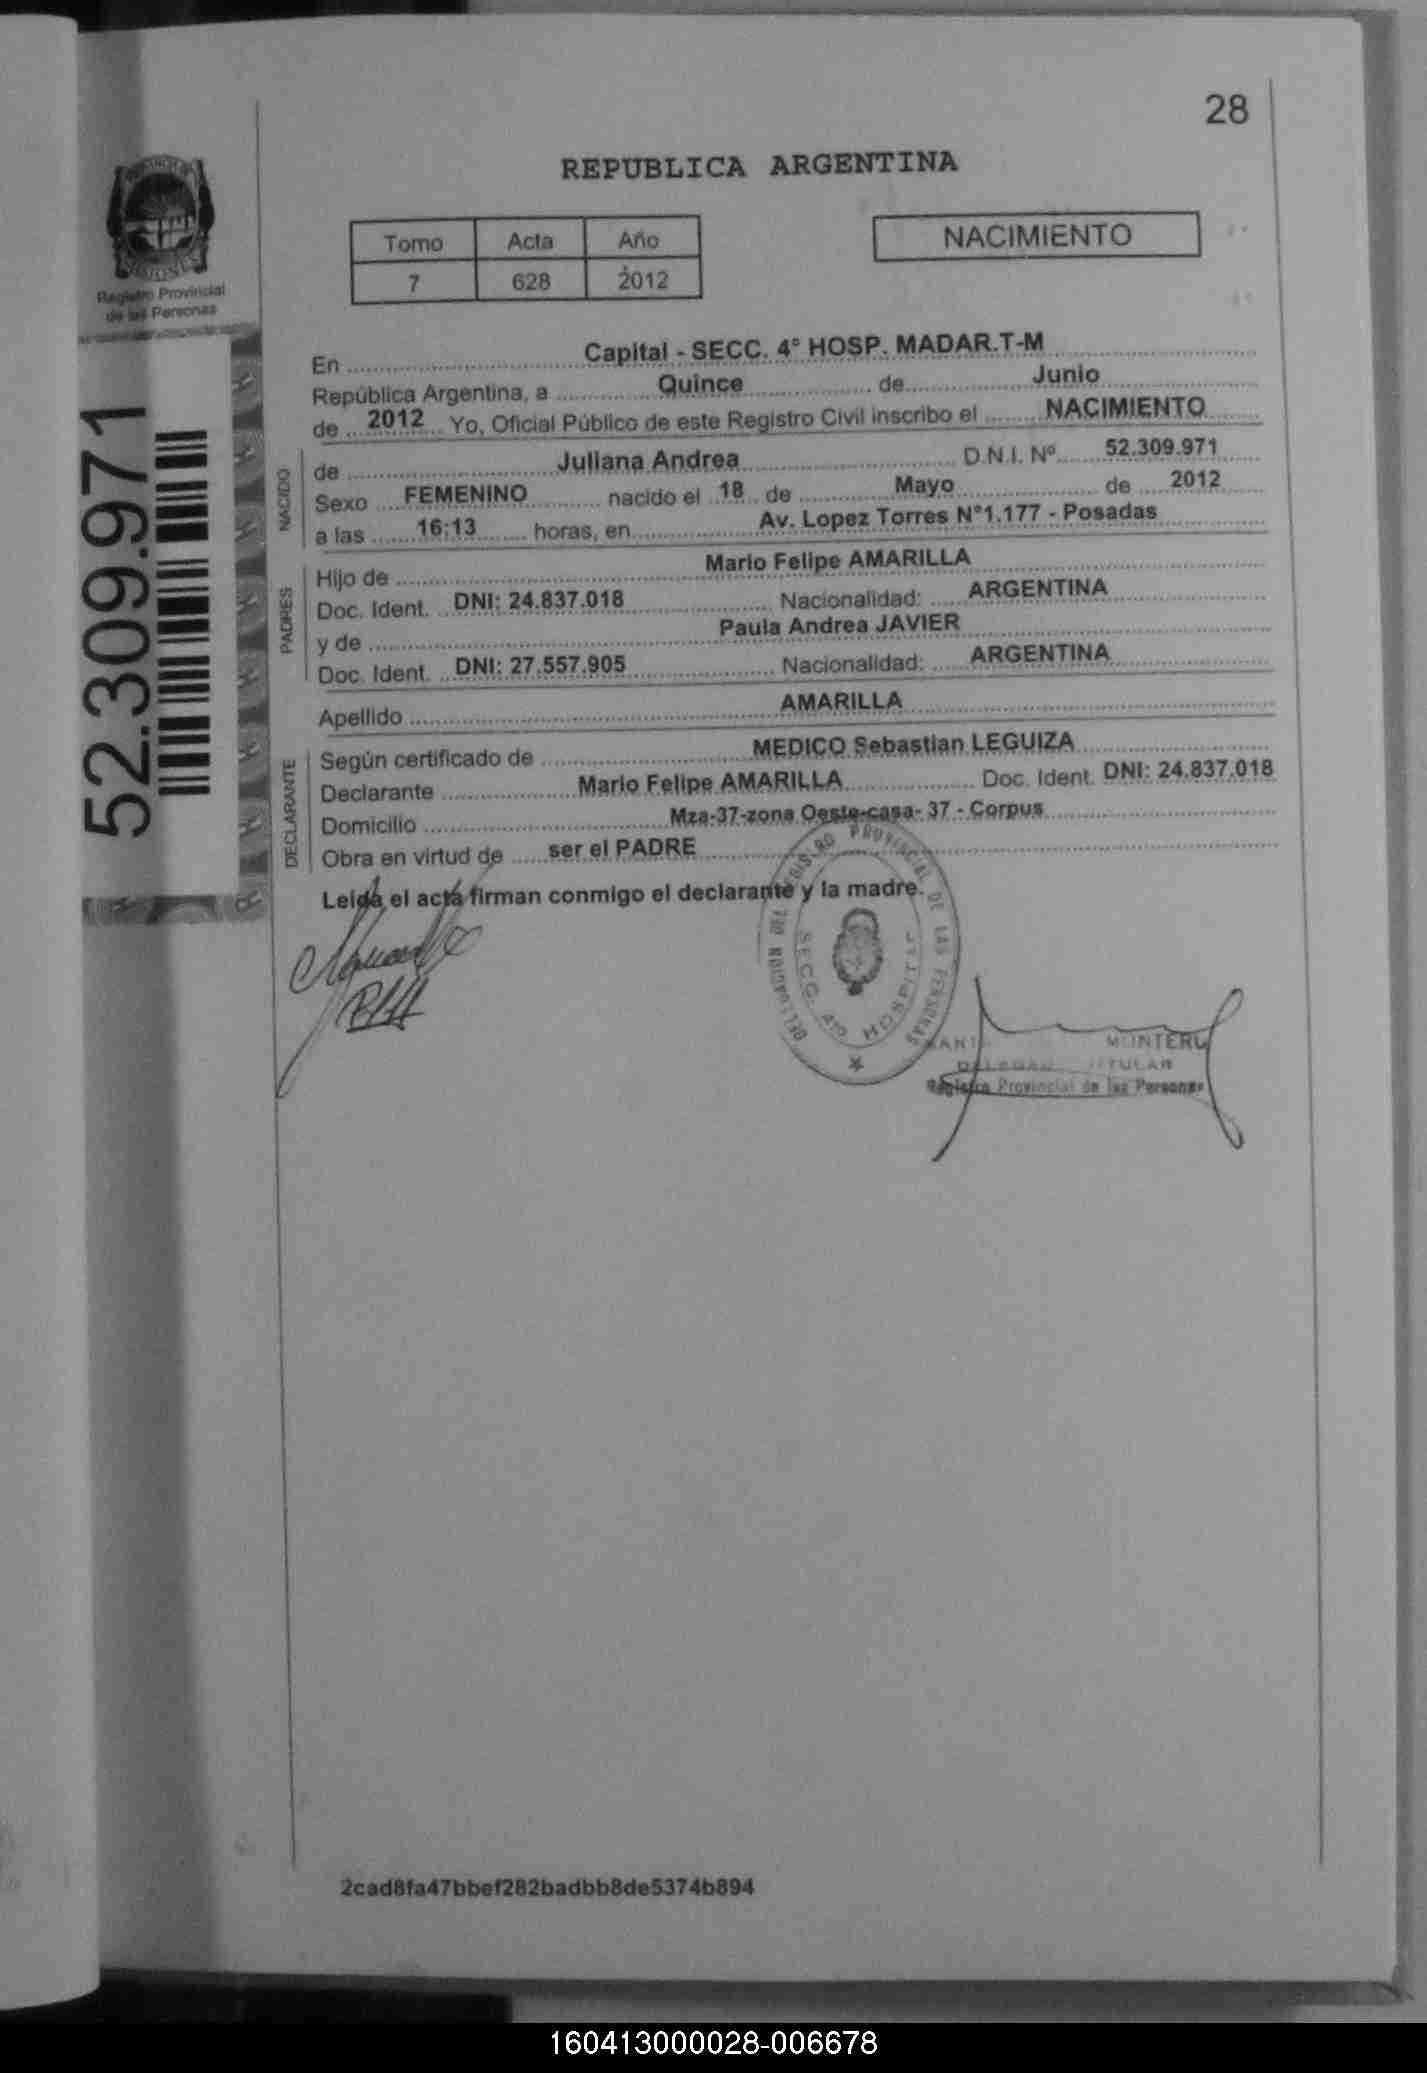 28
REPUBLICA ARGENTINA
Registro Provincial
de las Personas
Tomo Acta Año
7 628 2012
NACIMIENTO
52.309.971
En Capital - SECC. 4° HOSP. MADAR.T-M
República Argentina, a Quince de Junio
de 2012 Yo, Oficial Público de este Registro Civil inscribo el NACIMIENTO
NACIDO
de Juliana Andrea D.N.I. Nº 52.309.971
Sexo FEMENINO nacido el 18 de Mayo de 2012
a las 16:13 horas, en Av. Lopez Torres N°1.177 - Posadas
PADRES
Hijo de Mario Felipe AMARILLA
Doc. Ident. DNI: 24.837.018 Nacionalidad: ARGENTINA
y de Paula Andrea JAVIER
Doc. Ident. DNI: 27.557.905 Nacionalidad: ARGENTINA
Apellido AMARILLA
DECLARANTE
Según certificado de MEDICO Sebastian LEGUIZA
Declarante Mario Felipe AMARILLA Doc. Ident. DNI: 24.837.018
Domicilio Mza-37-zona Oeste-casa- 37 - Corpus
Obra en virtud de ser el PADRE
Leida el acta firman conmigo el declarante y la madre.
DELEGACION DEL REGISTRO PROVINCIAL DE LAS PERSONAS
SECC. 4to HOSPITAL
TITULAR
Registro Provincial de las Personas
2cad8fa47bbef282badbb8de5374b894
160413000028-006678